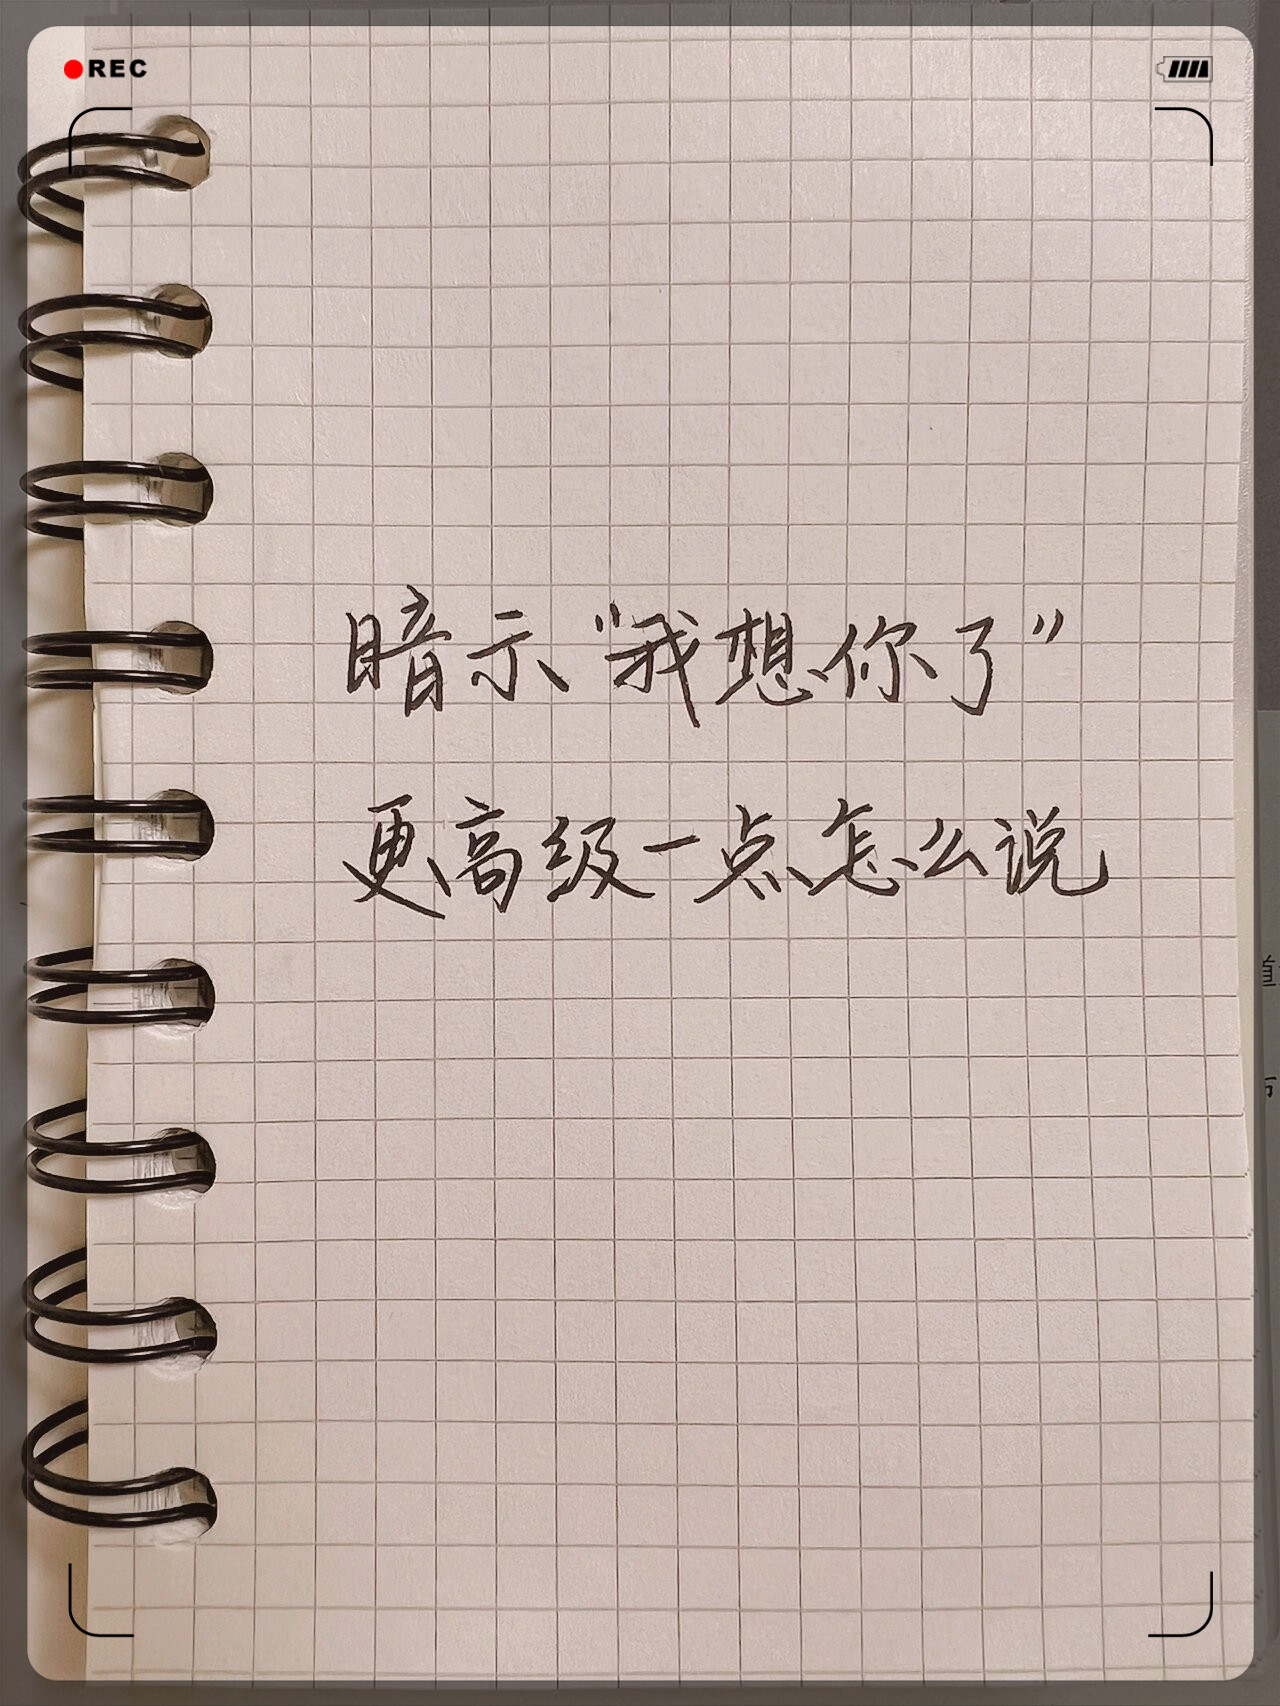 REC
暗示“我想你了”
更高级一点怎么说
道